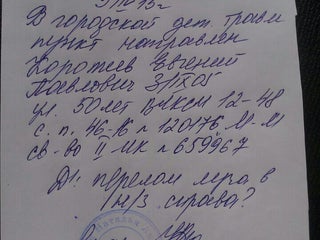 В городской дет. травм
пункт направлен
Коротеев Евгений
Павлович 3/IX05
ул. 50 лет ВЛКСМ 12-48
с. п. 46-16 №120176. М-М
св-во II-МК №659967
Д1: перелом
н/з справа?